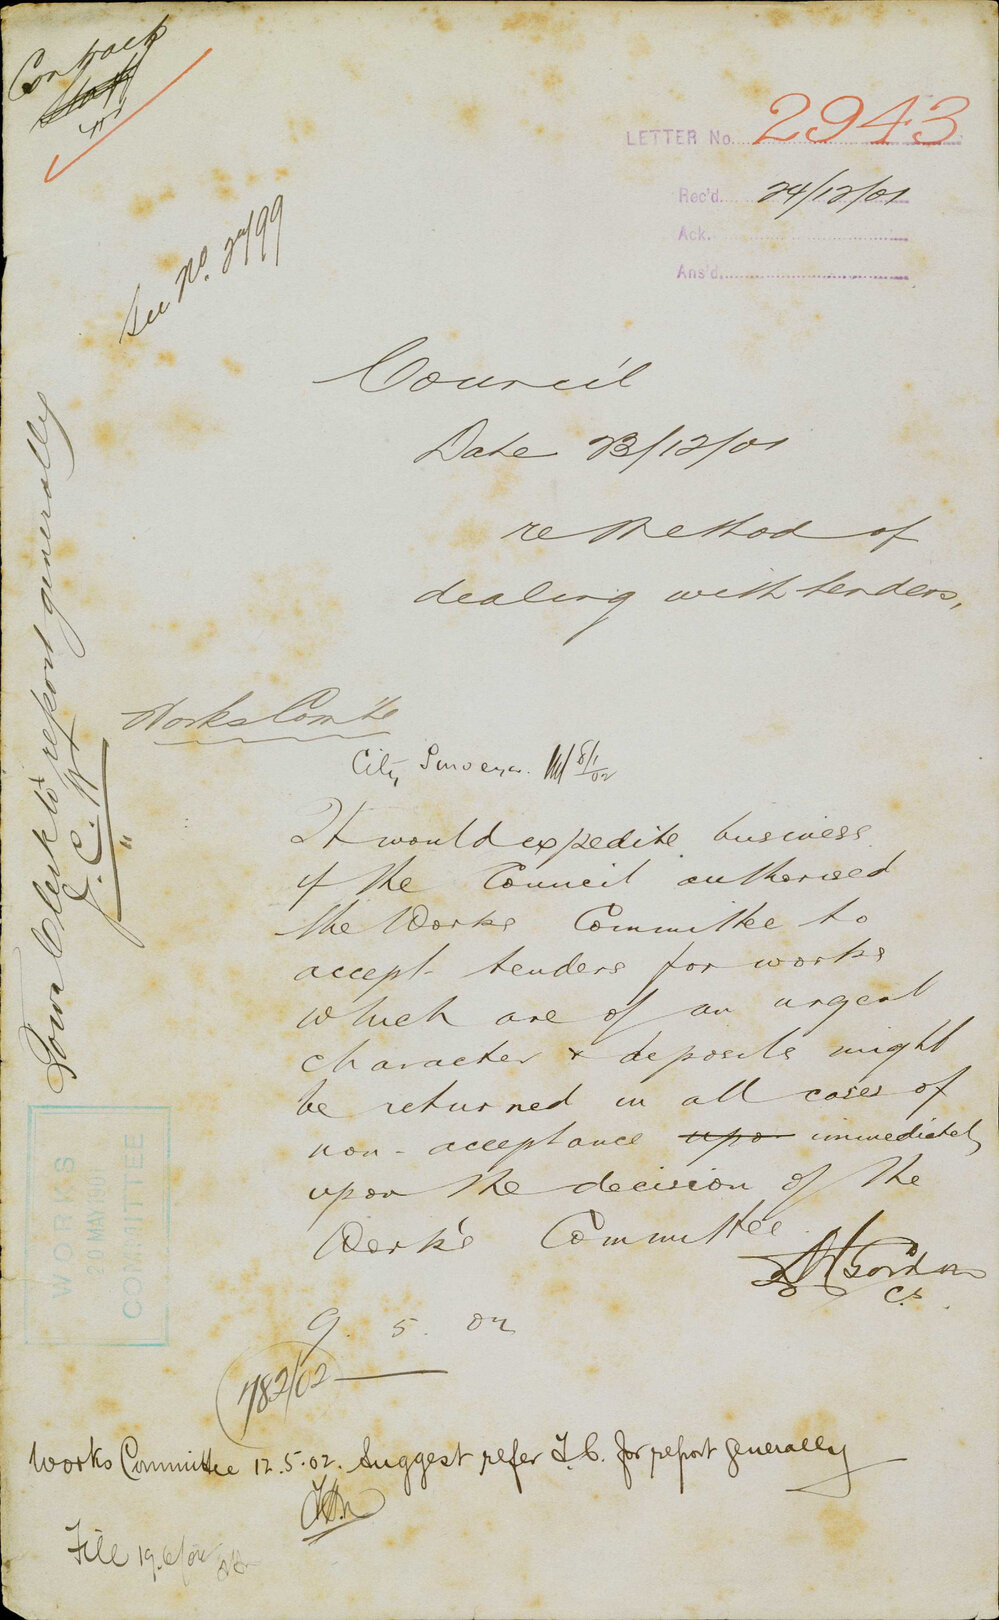 Contract
LETTER No. 2943
Rec'd. 24/12/01
Ack.
Ans'd.
See No. 2 /99
Council
Date 23/12/01
re Method of
dealing with tenders,
Works Com'tee
City Surveyor. 8/1/02
It would expedite business
if the Council authorised
the Works Committee to
accept tenders for works
which are of an urgent
character & deposits might
be returned in all cases of
non-acceptance upon immediately
upon the decision of the
Works Committee
Gordon
C.S.
9. 5. 02
782/02
Town Clerk to report generally
J. C. W
WORKS
20 MAY 190
COMMITTEE
Works Committee 12.5.02. Suggest refer T.C. for report generally
File 19.6/02